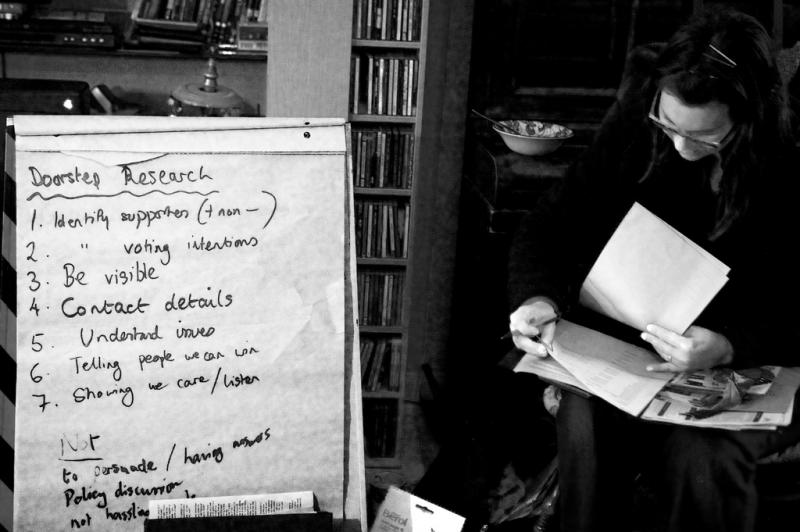 Doorstep Research
1. Identify supporters (+ non-)
2. " voting intentions
3. Be visible
4. Contact details
5. Understand issues
6. Telling people we can win
7. Showing we care/listen
Not
to persuade / having answers
Policy discussion
not hassling
Berol